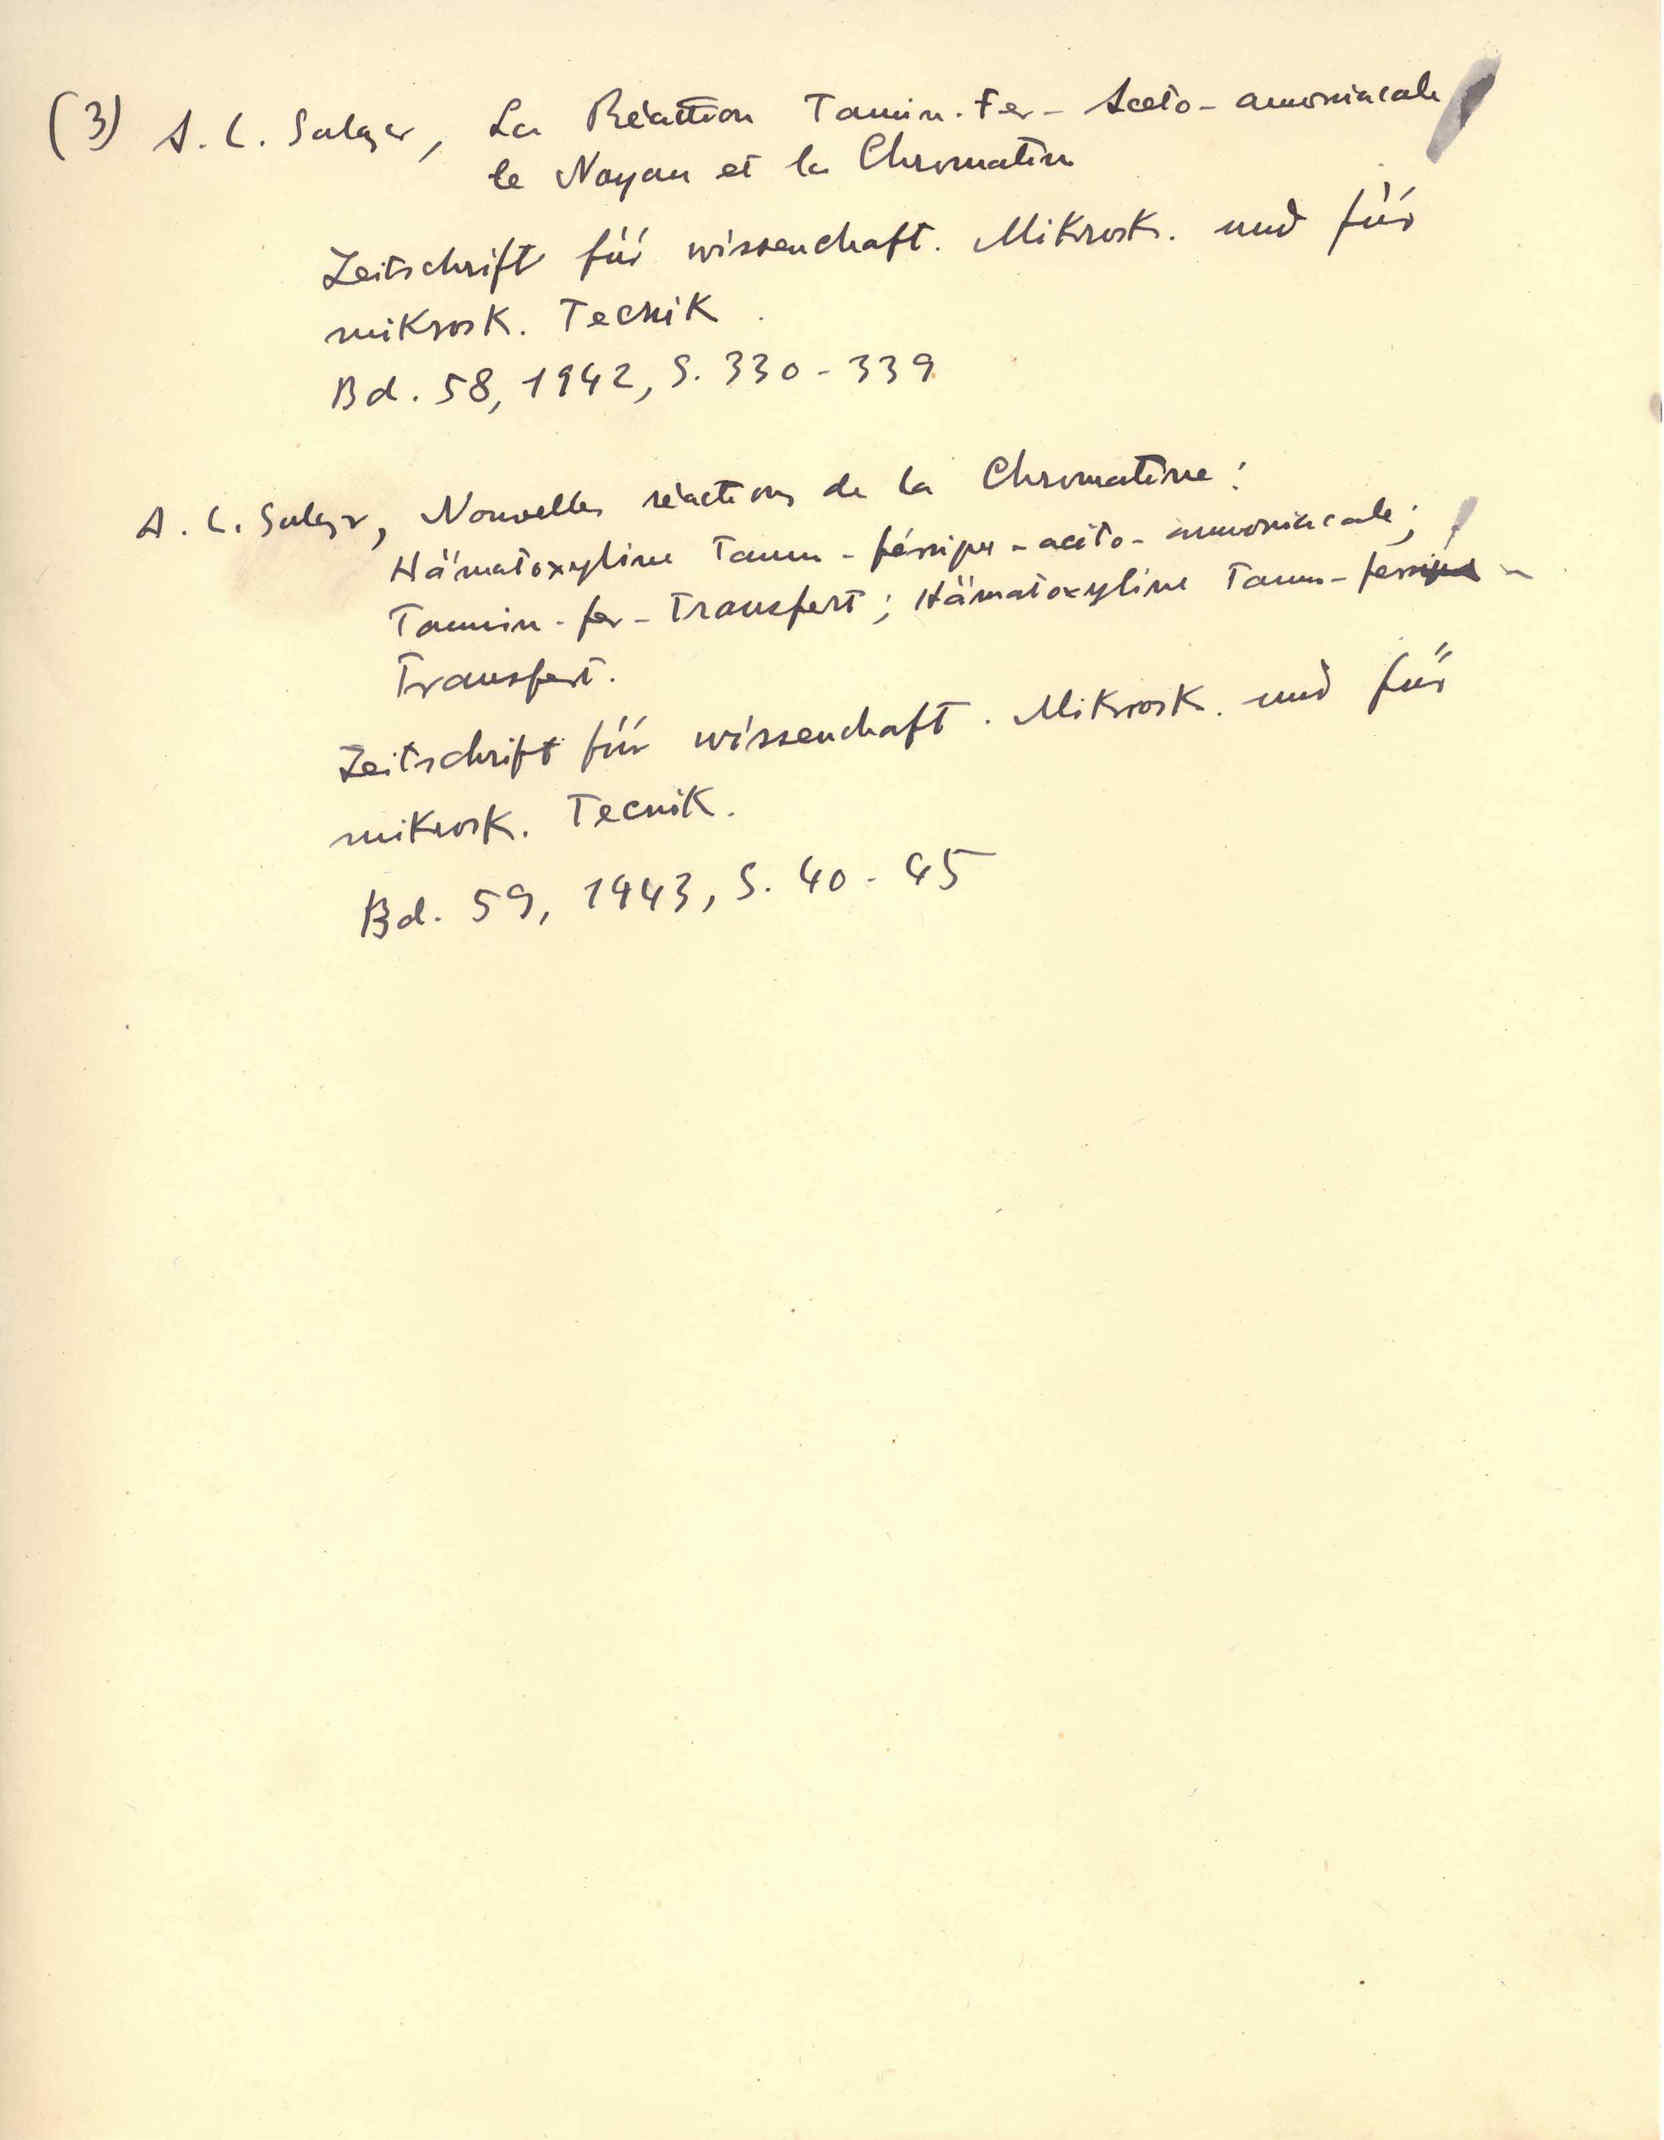 (3) A. L. Salazar, La Réaction Tannin-Fer-Aceto-amoniacale
le Noyau et la Chromatin
Zeitschrift für wissenchaft. Mikrosk. und für
mikrosk. Tecnik.
Bd. 58, 1942, S. 330-339
A. L. Salazar, Nouvelles réactions de la Chromatine:
Hämatoxyline Tannin-férrique-acéto-ammoniacale;
Tannin-fer-Transfert; Hämatoxyline Tannin-ferrique-
Transfert.
Zeitschrift für wissenchaft. Mikrosk. und für
mikrosk. Tecnik.
Bd. 59, 1943, S. 40-45